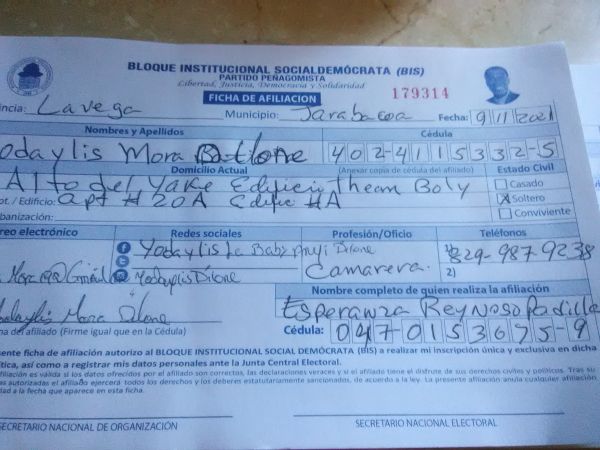 BLOQUE INSTITUCIONAL SOCIALDEMÓCRATA (BIS)
PARTIDO PEÑAGOMISTA
Libertad, Justicia, Democracia y Solidaridad
FICHA DE AFILIACION
179314
incia: La vega Municipio: Jarabacoa Fecha: 9/11/2021
Nombres y Apellidos Cédula
odaylis Mora 402-4115332-5
Domicilio Actual (Anexar copia de cédula del afiliado) Estado Civil
Alto del Yake Edificio Boly Casado
pt. / Edificio: apt #20A Edific #A X Soltero
banización: Conviviente
reo electrónico Redes sociales Profesión/Oficio Teléfonos
Yodaylis La Baby Dilone 1) 829-987-9238
Yodaylis Dilone Camarera. 2)
Nombre completo de quien realiza la afiliación
Mora Dilone Esperanza Reynoso Padilla
ma del afiliado (Firme igual que en la Cédula) Cédula: 047-0153675-9
sente ficha de afiliación autorizo al BLOQUE INSTITUCIONAL SOCIAL DEMÓCRATA (BIS) a realizar mi inscripción única y exclusiva en dicha
ítica, así como a registrar mis datos personales ante la Junta Central Electoral.
afiliación es válida si los datos ofrecidos por el afiliado son correctos, las declaraciones veraces y si el afiliado tiene el disfrute de sus derechos civiles y políticos. Tras su
as autorizadas el afiliado ejercerá todos los derechos y los deberes estatutariamente sancionados, de acuerdo a la ley. La presente afiliación anula cualquier afiliación
dad a la fecha que aparece en esta ficha.
SECRETARIO NACIONAL DE ORGANIZACIÓN SECRETARIO NACIONAL ELECTORAL